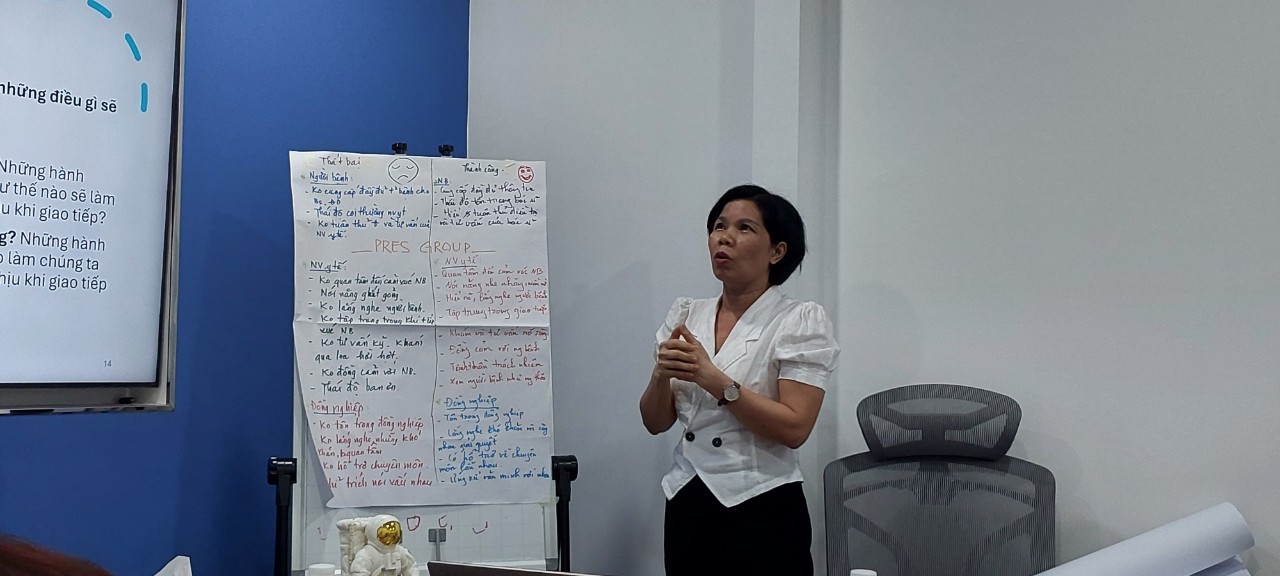 những điều gì sẽ
Những hành
ư thế nào sẽ làm
u khi giao tiếp?
g? Những hành
o làm chúng ta
hịu khi giao tiếp
14
Thất bại
Người bệnh:
- Ko cung cấp đầy đủ t² bệnh cho
BS, ĐD
- Thái độ coi thường nvyt
- Ko tuân thủ và tư vấn của
NV y tế.
Thành công
NB
- Cung cấp đầy đủ thông tin
- Thái độ tôn trọng bác sĩ
PRES GROUP
NV y tế:
- Ko quan tâm đến cảm xúc NB
- Nói năng gắt gỏng.
- Ko lắng nghe người bệnh.
- Ko tập trung trong khi tiếp
xúc NB
- Ko tư vấn kỹ. Khám
qua loa hời hợt.
- Ko đồng cảm với NB.
- Thái độ ban ơn.
NV y tế
- Quan tâm đến cảm xúc NB
- Nói năng nhẹ nhàng
- lắng nghe người bệnh
- Tập trung trong giao tiếp
- Khám và tư vấn
- Đồng cảm với ng bệnh
- Tinh thần trách nhiệm
- Xem người bệnh như ng thân
Đồng nghiệp
- Ko tôn trọng đồng nghiệp
- Ko lắng nghe, những khó
khăn, ko quan tâm
- Ko hỗ trợ chuyên môn
trích nói xấu nhau
Đồng nghiệp
- Tôn trọng đồng nghiệp
- Lắng nghe khó khăn
nhau giải quyết
- Có hỗ trợ về chuyên
môn lẫn nhau
- Ứng xử văn minh với nhau